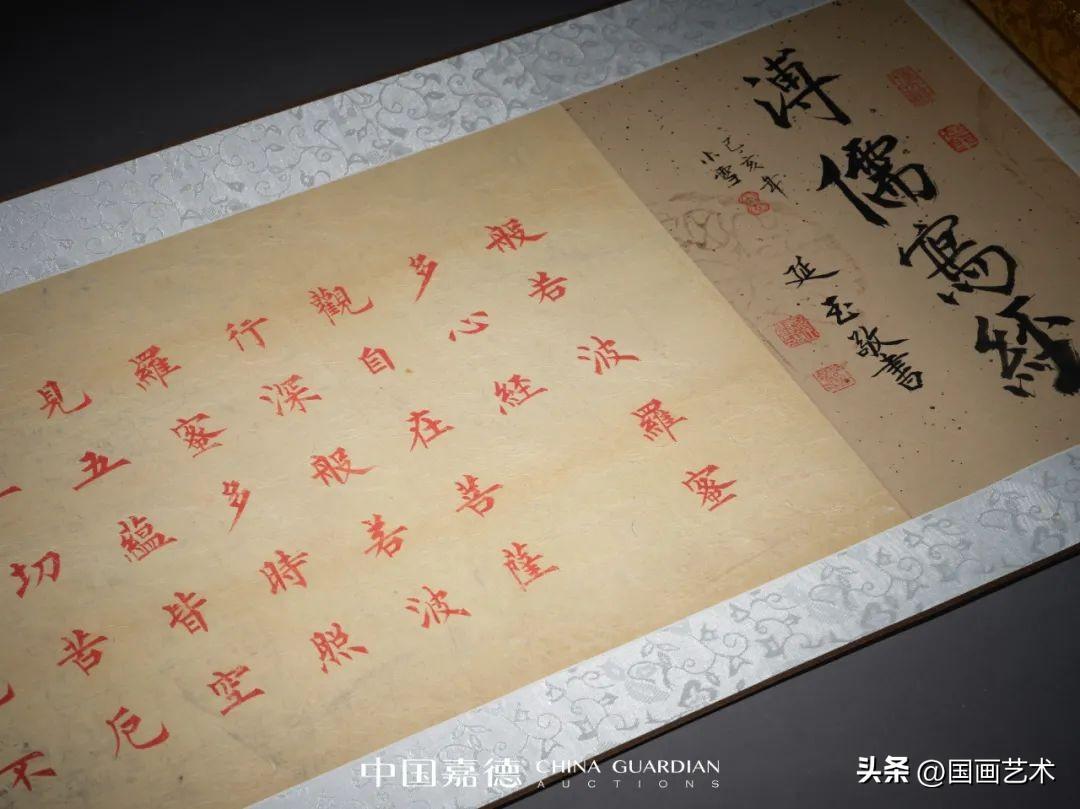 溥儒寫經
己亥年
小雪
延玉敬書
般若波羅蜜
多心経
觀自在菩薩
行深般若波
羅蜜多時照
見五蘊皆空
一切苦厄
不
中国嘉德 CHINA GUARDIAN
AUCTIONS
头条 @国画艺术